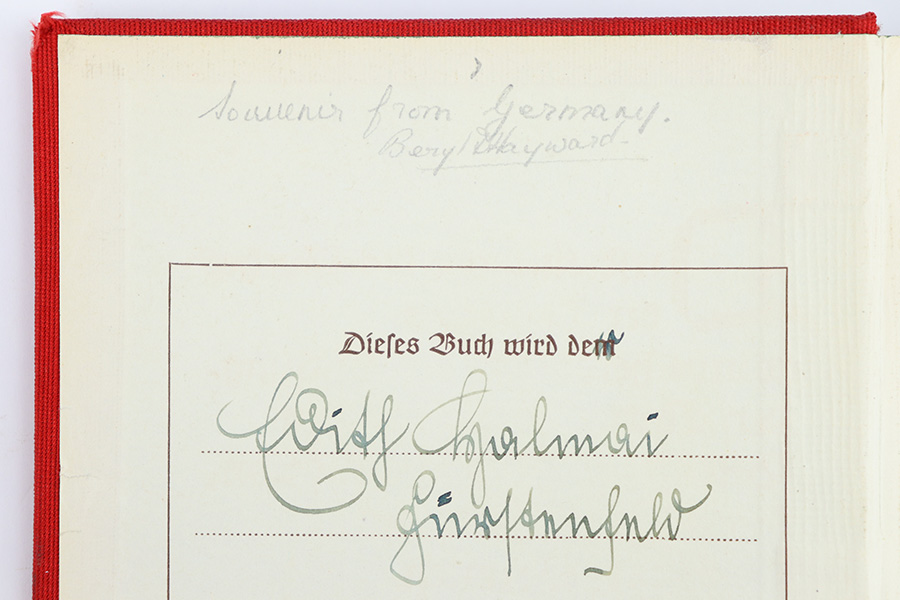 Souvenir from Germany.
Beryl Hayward
Dieses Buch wird der
Edith
Fürstenfeld